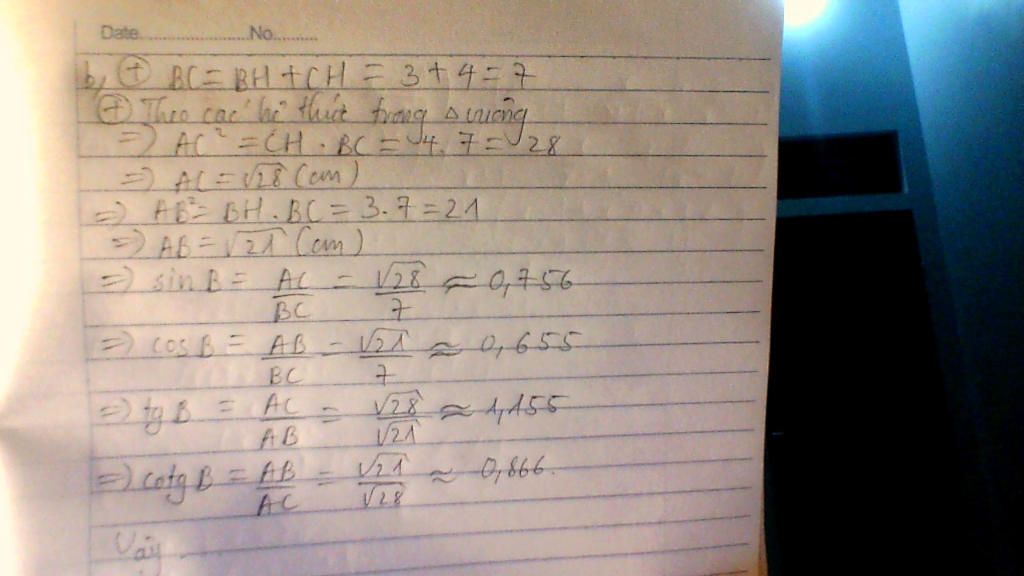 Date................No..........
b, ⊕ BC = BH + CH = 3 + 4 = 7
⊕ Theo các hệ thức trong Δ vuông
=> AC² = CH . BC = 4. 7 = 28
=> AC = √28 (cm)
=> AB² = BH . BC = 3.7 = 21
=> AB = √21 (cm)
=> sin B = AC/BC = √28/7 ≈ 0,756
=> cos B = AB/BC = √21/7 ≈ 0,655
=> tg B = AC/AB = √28/√21 ≈ 1,155
=> cotg B = AB/AC = √21/√28 ≈ 0,866.
Vậy ..........